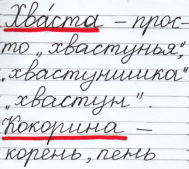 Хва́ста – прос-
то „хвастунья",
„хвастунишка"
„хвастун".
Кокорина –
корень, пень